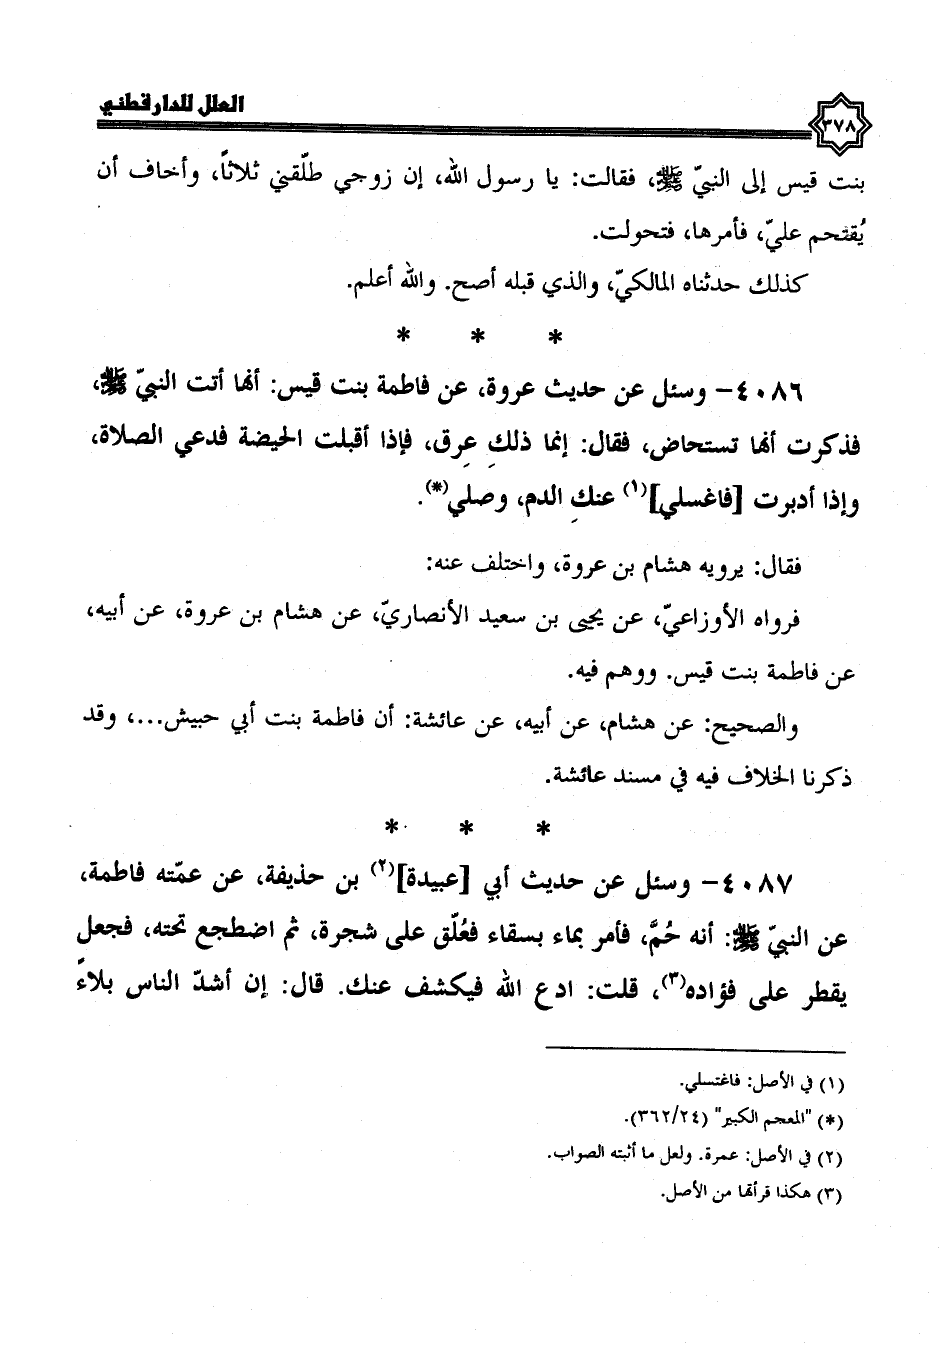 العلل للدارقطني
٣٧٨
بنت قيس إلى النبيّ ﷺ، فقالت: يا رسول الله، إن زوجي طلّقني ثلاثاً، وأخاف أن
يُقتحم عليّ، فأمرها، فتحولت.
كذلك حدثناه المالكيّ، والذي قبله أصح. والله أعلم.
* * *
٤٠٨٦- وسئل عن حديث عروة، عن فاطمة بنت قيس: أنها أتت النبيّ ﷺ،
فذكرت أنها تستحاض، فقال: إنما ذلكِ عِرق، فإذا أقبلت الحيضة فدعي الصلاة،
وإذا أدبرت [فاغسلي](١) عنكِ الدم، وصلي(*).
فقال: يرويه هشام بن عروة، واختلف عنه:
فرواه الأوزاعيّ، عن يحيى بن سعيد الأنصاريّ، عن هشام بن عروة، عن أبيه،
عن فاطمة بنت قيس. ووهم فيه.
والصحيح: عن هشام، عن أبيه، عن عائشة: أن فاطمة بنت أبي حبيش...، وقد
ذكرنا الخلاف فيه في مسند عائشة.
* * *
٤٠٨٧- وسئل عن حديث أبي [عبيدة](٢) بن حذيفة، عن عمّته فاطمة،
عن النبيّ ﷺ: أنه حُمَّ، فأمر بماء بسقاء فعُلّق على شجرة، ثم اضطجع تحته، فجعل
يقطر على فؤاده(٣)، قلت: ادع الله فيكشف عنك. قال: إن أشدّ الناس بلاءً
(١) في الأصل: فاغتسلي.
(*) "المعجم الكبير" (٣٦٢/٢٤).
(٢) في الأصل: عمرة. ولعل ما أثبته الصواب.
(٣) هكذا قرأتها من الأصل.